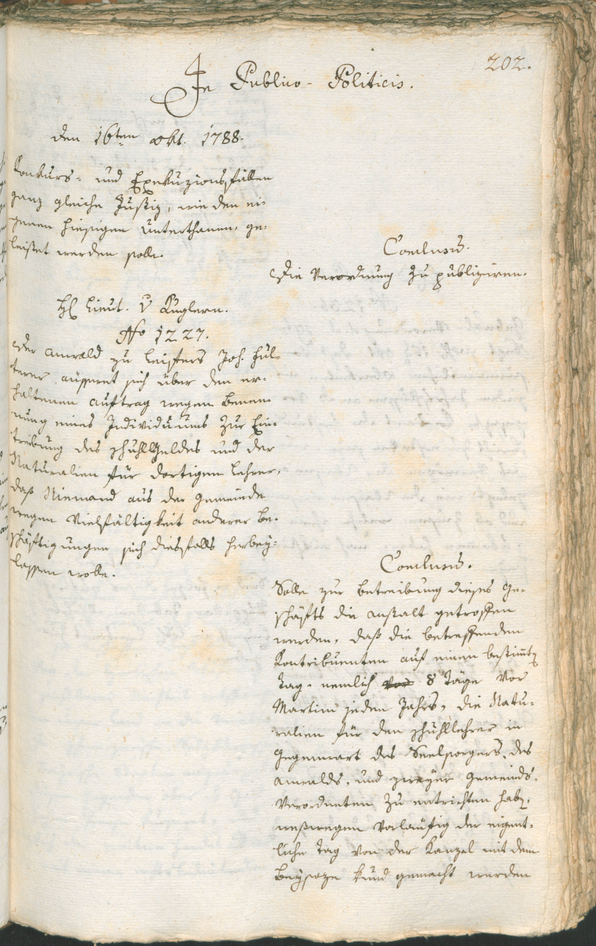 202.
In Publico-Politicis.
den 16ten Okt. 1788.
Konkurs- und Exekuzionsfällen
ganz gleiche Justiz, wie den ei-
genen hiesigen Unterthanen, ge-
leistet werden solle.
Conclusum.
Die Verordnung zu publiziren.
H. Lieut. v Kuglern.
No 1227.
Der Anwald zu Leifers Joh. Hül
äussert sich über den er-
haltenen Auftrag wegen Benen-
nung eines Individuums zur Ein-
treibung des Schullgeldes und der
Naturalien für dortigen Lehrer,
daß Niemand aus der Gemeinde
wegen Vielfältigkeit anderer Be-
schäftigungen sich diesfalls herbey-
lassen wolle.
Conclusum.
Solle zur Betreibung dieses Ge-
schäfts die Anstalt getroffen
werden, daß die betreffenden
Kontribuenten auf einen bestimmten
Tag, nemlich 8 Täge vor
Martini jeden Jahrs, die Natu-
ralien für den Schullehrer in
Gegenwart des Seelsorgers, des
Anwalds, und zweyer Gemeinds-
Verordneten zu entrichten haben,
weßwegen vorläufig der eigent-
liche Tag von der Kanzel mit dem
Beysaze kund gemacht werden